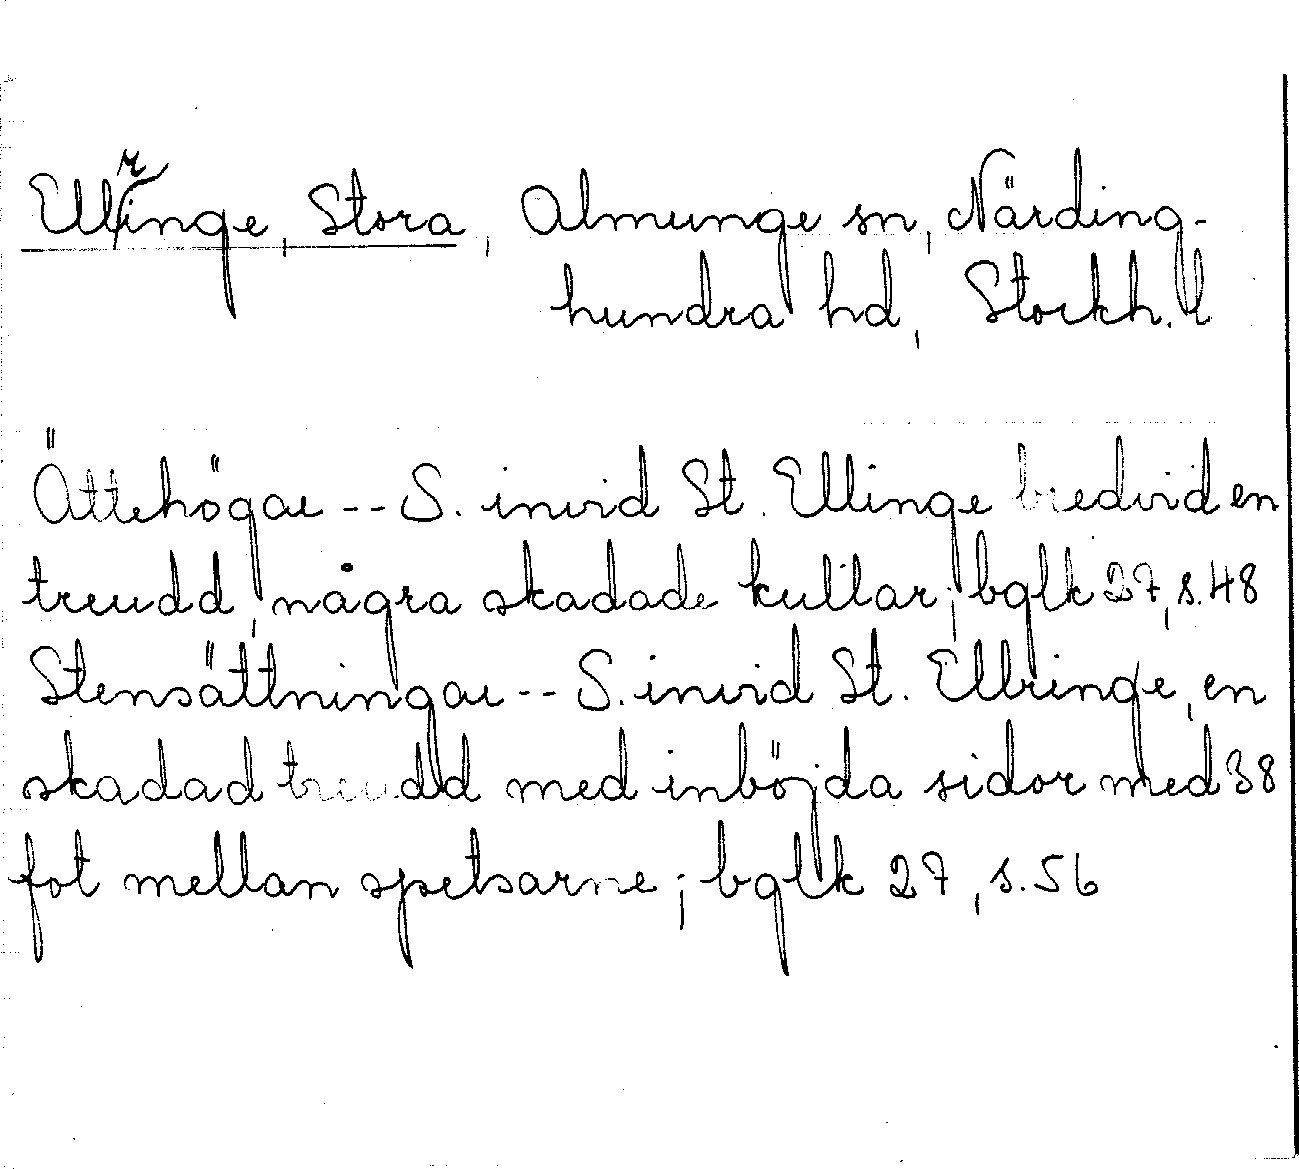 Ellringe, Stora, Almunge sn, Närding-
hundra hd, Stockh. l
Ättehögar -- S. invid St. Ellinge bredvid en
treudd, några skadade kullar; bglk 27, s.48
Stensättningar -- S. invid St. Ellringe, en
skadad treudd med inböjda sidor med 38
fot mellan spetsarne; bglk 27, s.56